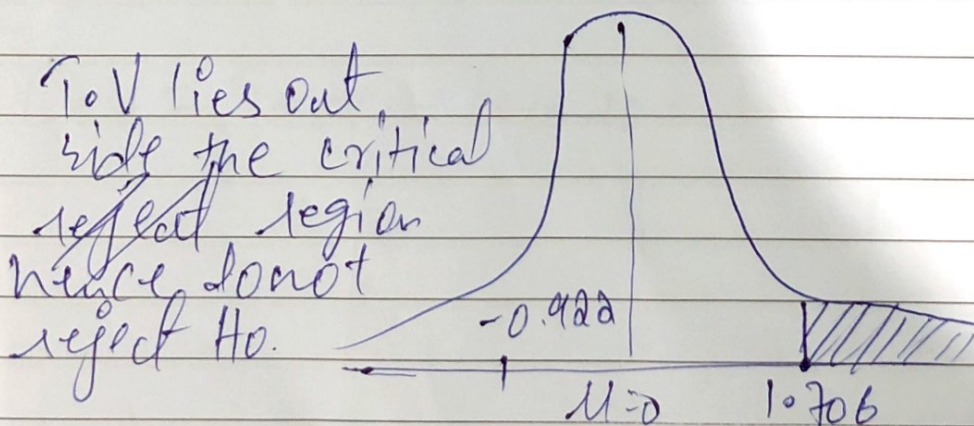 T.V lies out
side the critical
reject region
hence donot
reject Ho.
-0.922
μ=0
1.706